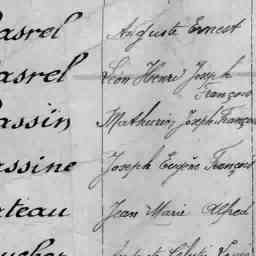 asrel Auguste Ernest
asrel Léon Henri Joseph
François
assin Mathurin Joseph François
assine Joseph Eugène François
ateau Jean Marie Alfred
Auguste